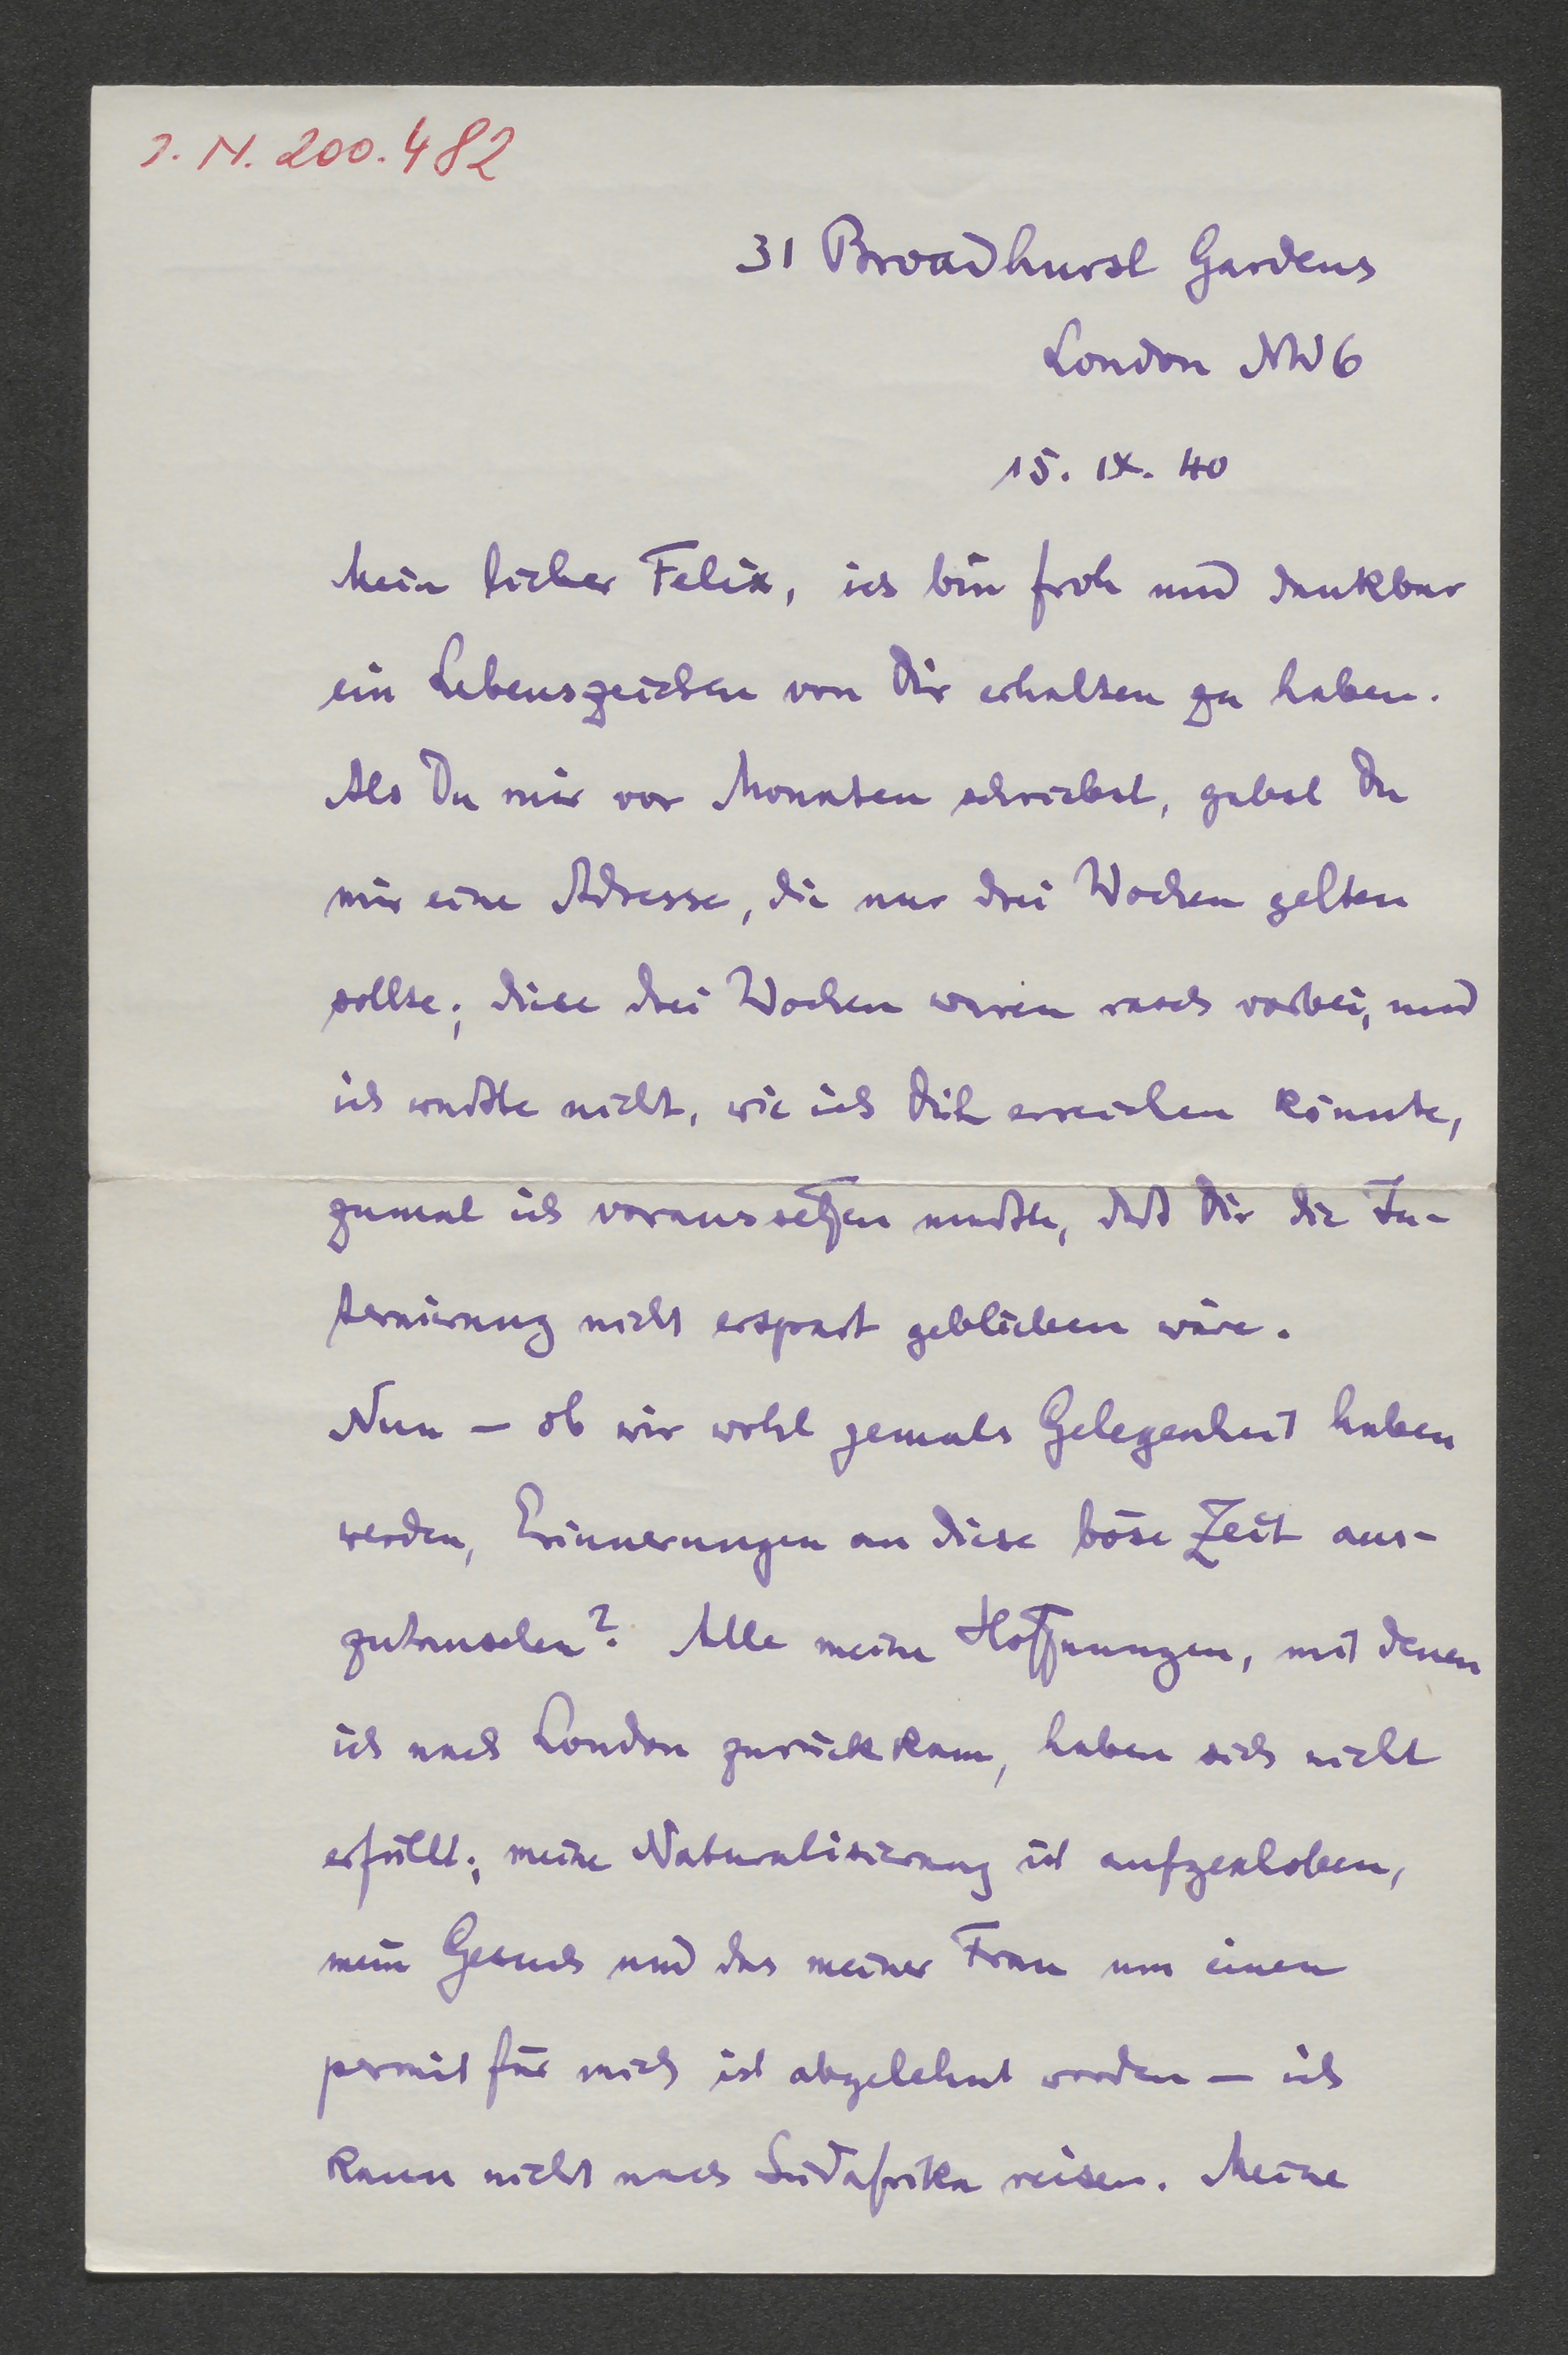 J. N. 200.482
31 Broadhurst Gardens
London NW6
15. IX. 40
Mein lieber Felix, ich bin froh und dankbar
ein Lebenszeichen von Dir erhalten zu haben.
Als Du mir vor Monaten schriebst, gabst Du
mir eine Adresse, die nur drei Wochen gelten
sollte; diese drei Wochen waren rasch vorbei, und
ich wußte nicht, wie ich Dich erreichen könnte,
zumal ich voraussetzen mußte, daß Dir die In-
ternierung nicht erspart geblieben wäre.
Nun – ob wir wohl jemals Gelegenheit haben
werden, Erinnerungen an diese böse Zeit aus-
zutauschen? Alle meine Hoffnungen, mit denen
ich nach London zurückkam, haben sich nicht
erfüllt; meine Naturalisierung ist aufgeschoben,
mein Gesuch und das meiner Frau um einen
permit für mich ist abgelehnt worden – ich
kann nicht nach Südafrika reisen. Meine